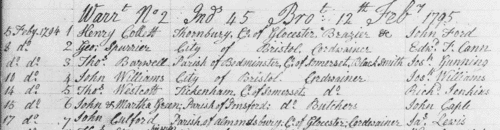 Warrt. No 2 Ind 45 Brot. 12th Feby 1795
5 Feby. 1794 1 Henry Collett Thornbury, C. of Glocester Brazier &c John Ford
8 do. 2 Geo. Spurrier City of Bristol Cordwainer Edwd. T. Cann
do do. 3 Thos. Barwell Parish of Bedminster, C. of Somerset, Black Smith Jos. Gunning
10 do. 4 John Williams City of Bristol Cordwainer Jos. Williams
14 do 5 Thos. Westcott Tickenham, C. of Somerset do. Richd. Jenkins
15 do 6 John & Martha Green; Parish of do. Butchers John Caple
17 do. 7 John Culford Parish of almondsbury C. of Glocester; Cordwainer Jas. Lewis